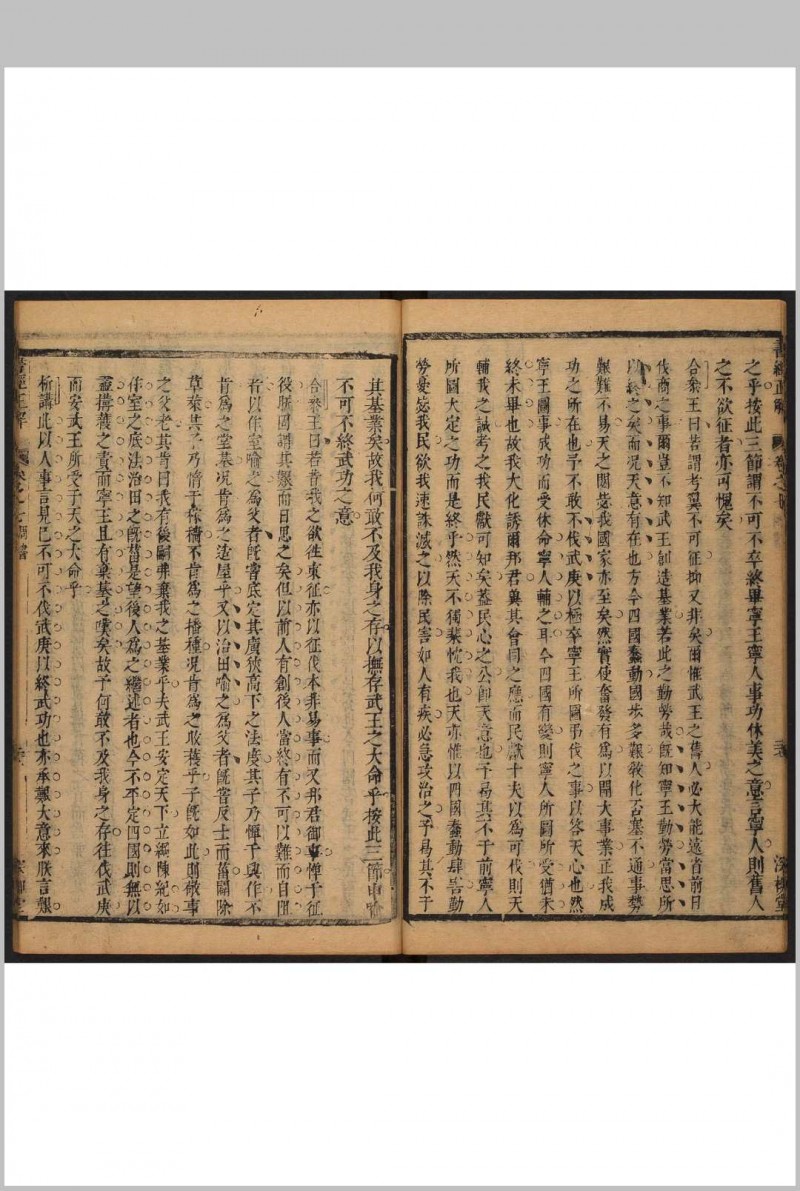 之乎按此三節謂不可不卒終畢寧王寧人事功休美之意言寧人則舊人
之不欲征者亦可愧矣
合叅王曰若謂考翼不可征抑又非矣爾惟武王之舊人必大能遠省前日
伐商之事爾豈不知武王創造基業若此之勤勞哉既知寧王勤勞當思所
以終之矣而况天意有在也方今四國蠢動國步多艱敎化否塞不通事勢
艱難不易天之閟毖我國家亦至矣然實使奮發有為以開大事業正我成
功之所在也予不敢不伐武庚以極卒寧王所圖弔伐之事以答天心也然
寧王圖事成功而受休命寧人輔之耳今四國有變則寧人所圖所受猶未
終未畢也故我大化誘爾邦君冀其會同之應而民獻十夫以為可伐則天
輔我之誠考之我民獻可知矣蓋民心之公卽天意也予曷其不于前寧人
所圖大定之功而是終乎然天不獨棐忱我也天亦惟以四國蠢動肆害勤
勞憂毖我民欲我速誅滅之以除民害如人有疾必急攻治之予曷其不于
其基業矣故我何敢不及我身之存以撫存武王之大命乎按此三節申喻
不可不終武功之意
合叅王曰若昔我之欲往東征亦以征伐本非易事而又邦君御事憚于征
役嘗因謂其艱而日思之矣但以前人有創後人當終有不可以難而自阻
者以作室喻之為父者既嘗底定其廣狹高下之法度其子乃憚于與作不
肯為之堂基况肯為之造屋乎又以治田喻之為父者既嘗反土而菑闢除
草萊其子乃惰于稼穡不肯為之播種况肯為之收穫乎子既如此則敬事
之父老其肯曰我有後嗣弗棄我之基業乎夫武王安定天下立綱陳紀如
作室之底法治田之既菑是望後人為之繼述者也今不平定四國則無以
盡搆穫之責而寧王且有棄基之嘆矣故予何敢不及我身之存往伐武庚
而安武王所受于天之大命乎
析講此以人事言見已不可不伐武庚以終武功也亦承艱大意來朕言艱